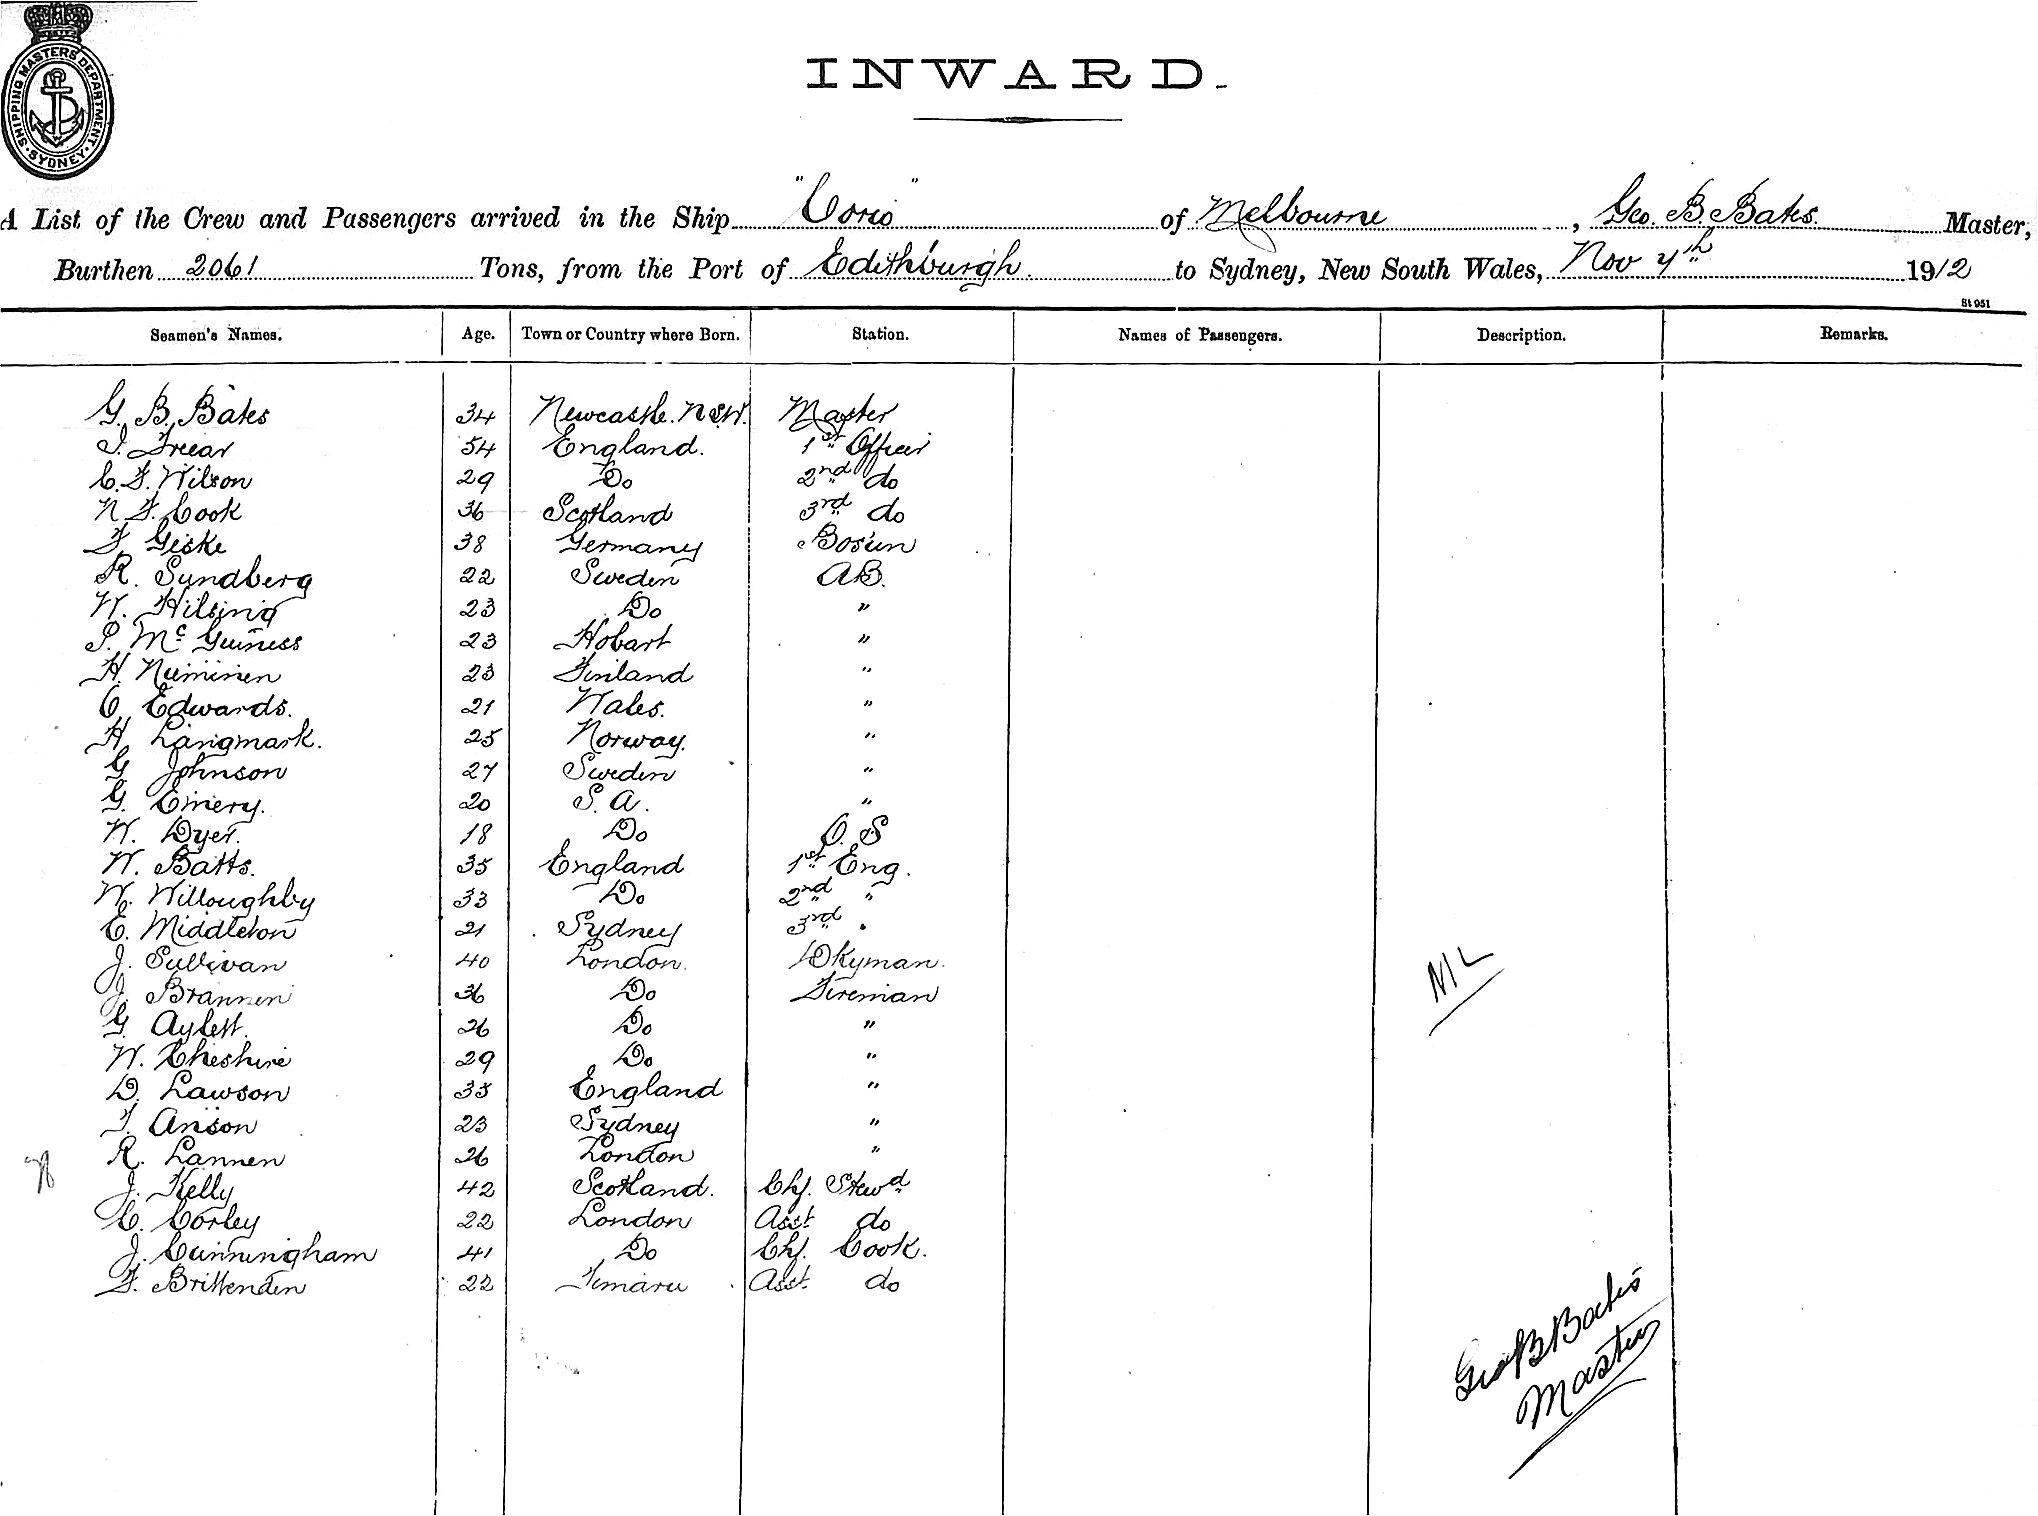 SHIPPING MASTERS DEPARTMENT · SYDNEY ·
INWARD.
A List of the Crew and Passengers arrived in the Ship "Corio" of Melbourne, Geo. B. Bates. Master,
Burthen 2061 Tons, from the Port of Edithburgh. to Sydney, New South Wales, Nov 4th 1912
St 951
Seamen's Names. Age. Town or Country where Born. Station. Names of Passengers. Description. Remarks.
G. B. Bates 34 Newcastle. N.S.W. Master
54 England. 1st Officer
C. F. Wilson 29 Do 2nd do
N. F. Cook 36 Scotland 3rd do
F Geske 38 Germany Bosun
R. Sundberg 22 Sweden AB.
W. Hilsing 23 Do "
P. McGuiness 23 Hobart "
H. Numinen 23 Finland "
O. Edwards. 21 Wales. "
H Langmark. 25 Norway. "
G Johnson 27 Sweden "
G. Emery. 20 S. A. "
W. Dyer. 18 Do O. S
W. Batts. 35 England 1st Eng.
W. Willoughby 33 Do 2nd "
E. Middleton 21 Sydney 3rd "
J. Sullivan 40 London. Dkyman.
J. Brannen 36 Do Fireman
G. Aylett. 26 Do "
W. Cheshire 29 Do "
D. Lawson 33 England "
T. Anson 23 Sydney "
R. Lannen 26 London "
J. Kelly 42 Scotland. Chf. Stewd
C. Corley 22 London Asst. do
J. Cunningham 41 Do Chf. Cook.
F. Brittenden 22 Timaru Asst. do
Geo B Bates
Master